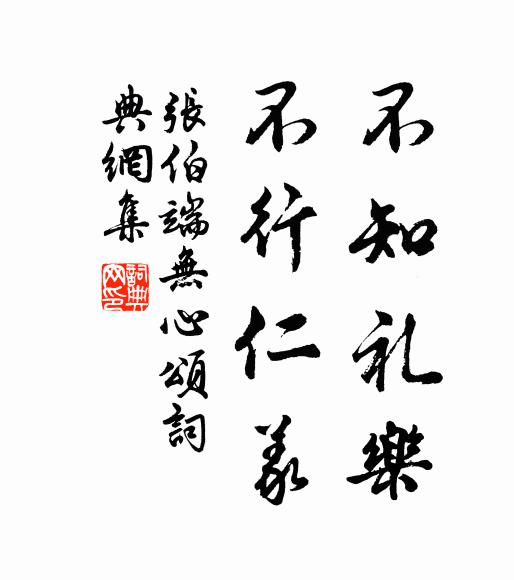 不知礼樂
不行仁義
張伯端無心頌詞
典網集
詞典
网印